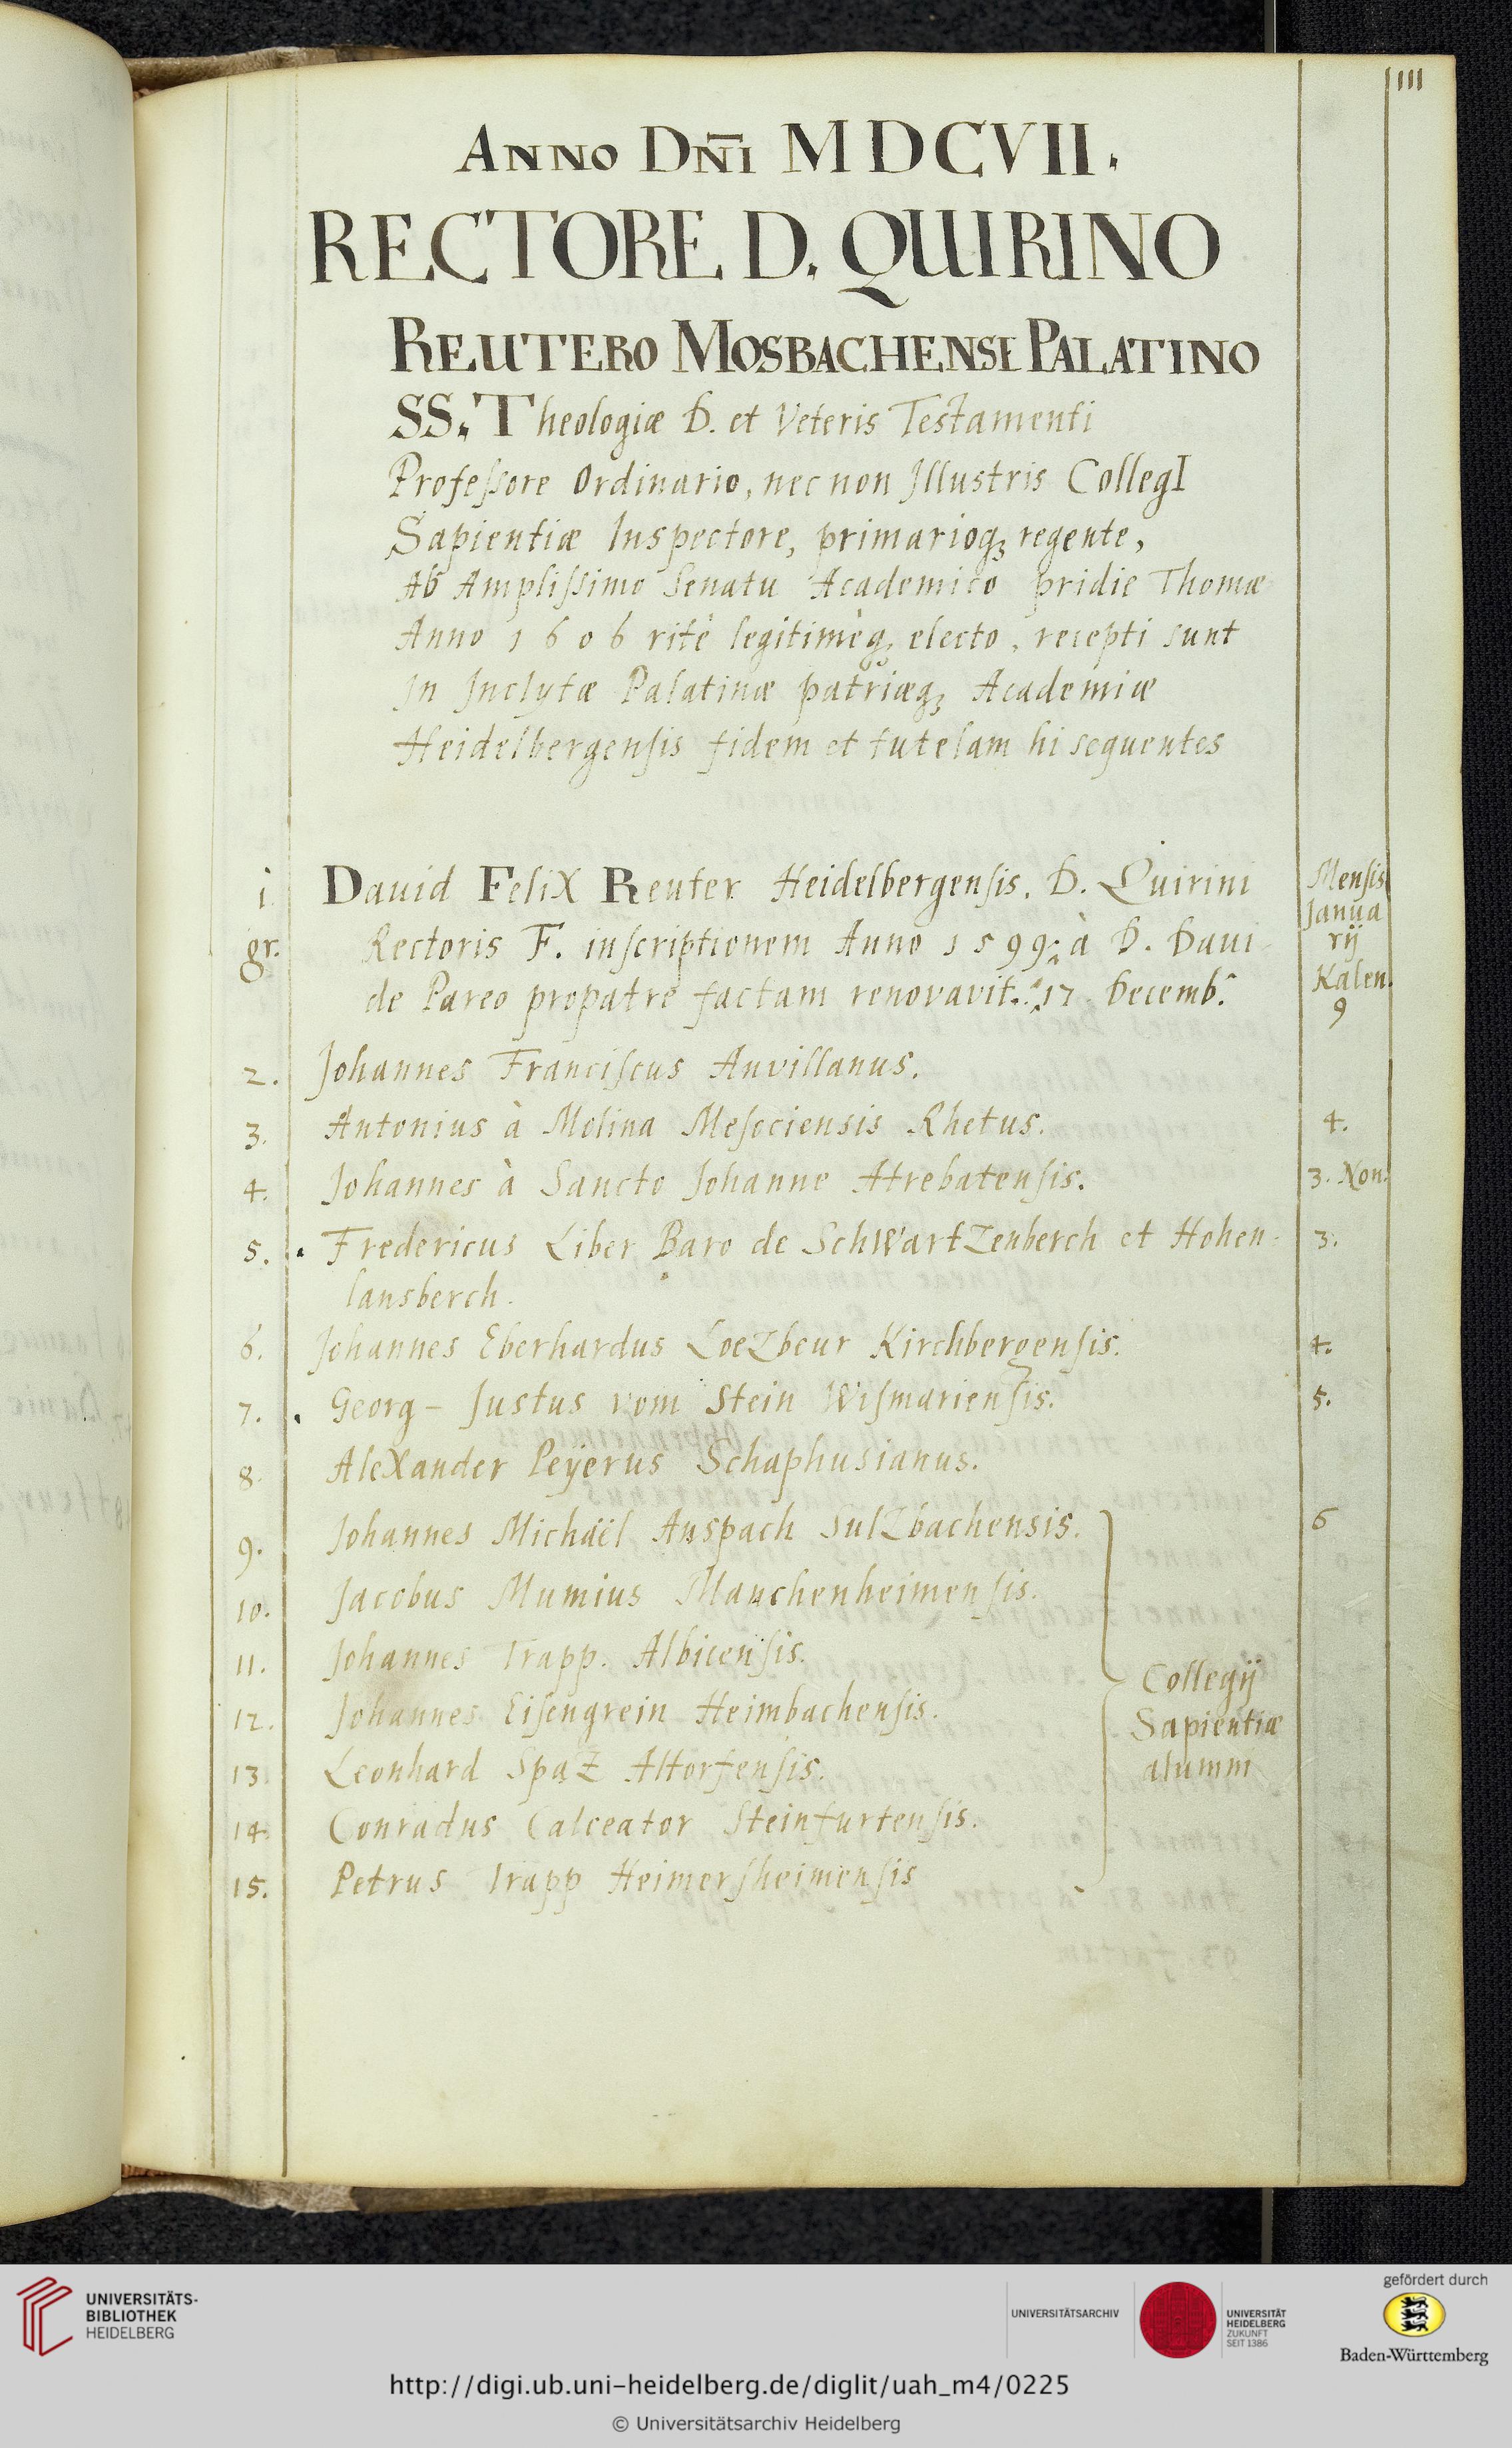 1111
ANNO DN̄I MDCVII.
RECTORE D. QUIRINO
REUTERO MOSBACHENSI PALATINO
SS. Theologiæ D. et Veteris Testamenti
Profeſsore Ordinario, nec non Jllustris CollegI
Sapientiæ Inspectore, primarioqꝫ regente,
Ab Ampliſsimo Senatu Academico pridie Thomæ
Anno 1606 ritè legitimèqꝫ electo, recepti sunt
in Jnclytæ Palatinæ patriæqꝫ Academiæ
Heidelbergenſis fidem et tutelam hi sequentes
1. Dauid Felix Reuter Heidelbergenſis. D. Quirini Menſis Janua
gr. Rectoris F. inſcriptionem Anno 1599. à D. Daui rij
de Pareo propatre factam renovavit. 17. Decemb. Kalen. 9
2. Johannes Franciſcus Anvillanus.
3. Antonius à Molina Meſociensis Rhetus. 4.
4. Johannes à Sancto Johanne Atrebatenſis. 3. Non.
5. Fredericus Liber Baro de SchwartZenberch et Hohen- 3.
lansberch.
6. Johannes Eberhardus LoeZbeur Kirchbergenſis. 4.
7. Georg- Justus vom Stein Wiſmarienſis. 5.
8. Alexander Peÿerus Schaphusianus.
9. Johannes Michaël Anspach SulZbachensis. 6
10. Jacobus Mumius Mauchenheimenſis.
11. Johannes Trapp. Albicenſis.
Collegij
12. Johannes Eiſengrein Heimbachenſis.
Sapientiæ
13. Leonhard SpaZ Altorfenſis.
alumni
14. Conradus Calceator Steinfurtenſis.
15. Petrus Trapp Heimerſheimenſis
UNIVERSITÄTS-
BIBLIOTHEK
HEIDELBERG
UNIVERSITÄTSARCHIV
UNIVERSITÄT
HEIDELBERG
ZUKUNFT
SEIT 1386
gefördert durch
Baden-Württemberg
http://digi.ub.uni-heidelberg.de/diglit/uah_m4/0225
© Universitätsarchiv Heidelberg